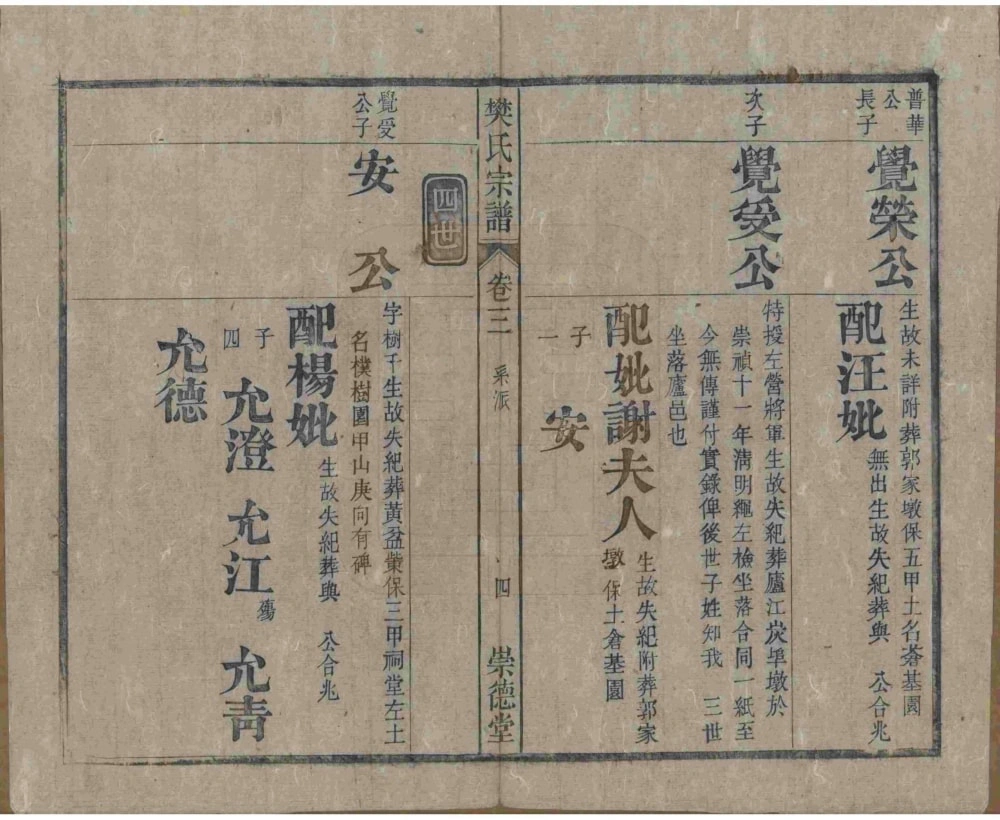 普華
公
長子
覺榮公
生故未詳附葬郭家墩保五甲土名峇基園
配汪妣
無出生故失紀葬與 公合兆
次子
覺受公
特授左營將軍生故失紀葬廬江炭埠墩於
崇禎十一年淸明繩左檢坐落合同一紙至
今無傳謹付實錄俾後世子姓知我 三世
坐落廬邑也
配妣謝夫人
生故失紀附葬郭家
墩保土倉基園
子一
安
樊氏宗譜
卷三
系派
四
崇德堂
四世
覺受
公子
安公
字樹千生故失紀葬黃盆保三甲祠堂左土
名樸樹園甲山庚向有碑
配楊妣
生故失紀葬與 公合兆
子四
允澄 允江 殤 允靑
允德